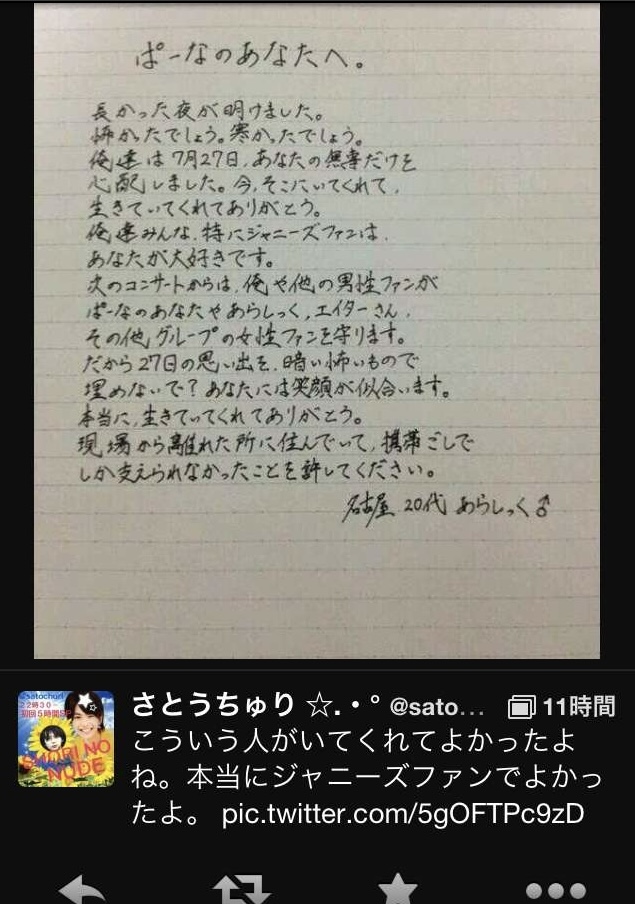 ぱーなのあなたへ。
長かった夜が明けました。
怖かったでしょう。寒かったでしょう。
俺達は7月27日、あなたの無事だけを
心配しました。今、そこにいてくれて、
生きていてくれてありがとう。
俺達みんな、特にジャニーズファンは、
あなたが大好きです。
次のコンサートからは、俺や他の男性ファンが
ぱーなのあなたやあらしっく、エイターさん、
その他グループの女性ファンを守ります。
だから27日の思い出を、暗い怖いもので
埋めないで?あなたには笑顔が似合います。
本当に、生きていてくれてありがとう。
現場から離れた所に住んでいて、携帯ごしで
しか支えられなかったことを許してください。
名古屋 20代 あらしっく♂
さとうちゅり ☆.・° @sato... 11時間
こういう人がいてくれてよかったよ
ね。本当にジャニーズファンでよかっ
たよ。 pic.twitter.com/5gOFTPc9zD
@satochuri
22時30~
初回5時間SP
SHORI NO
NUDE